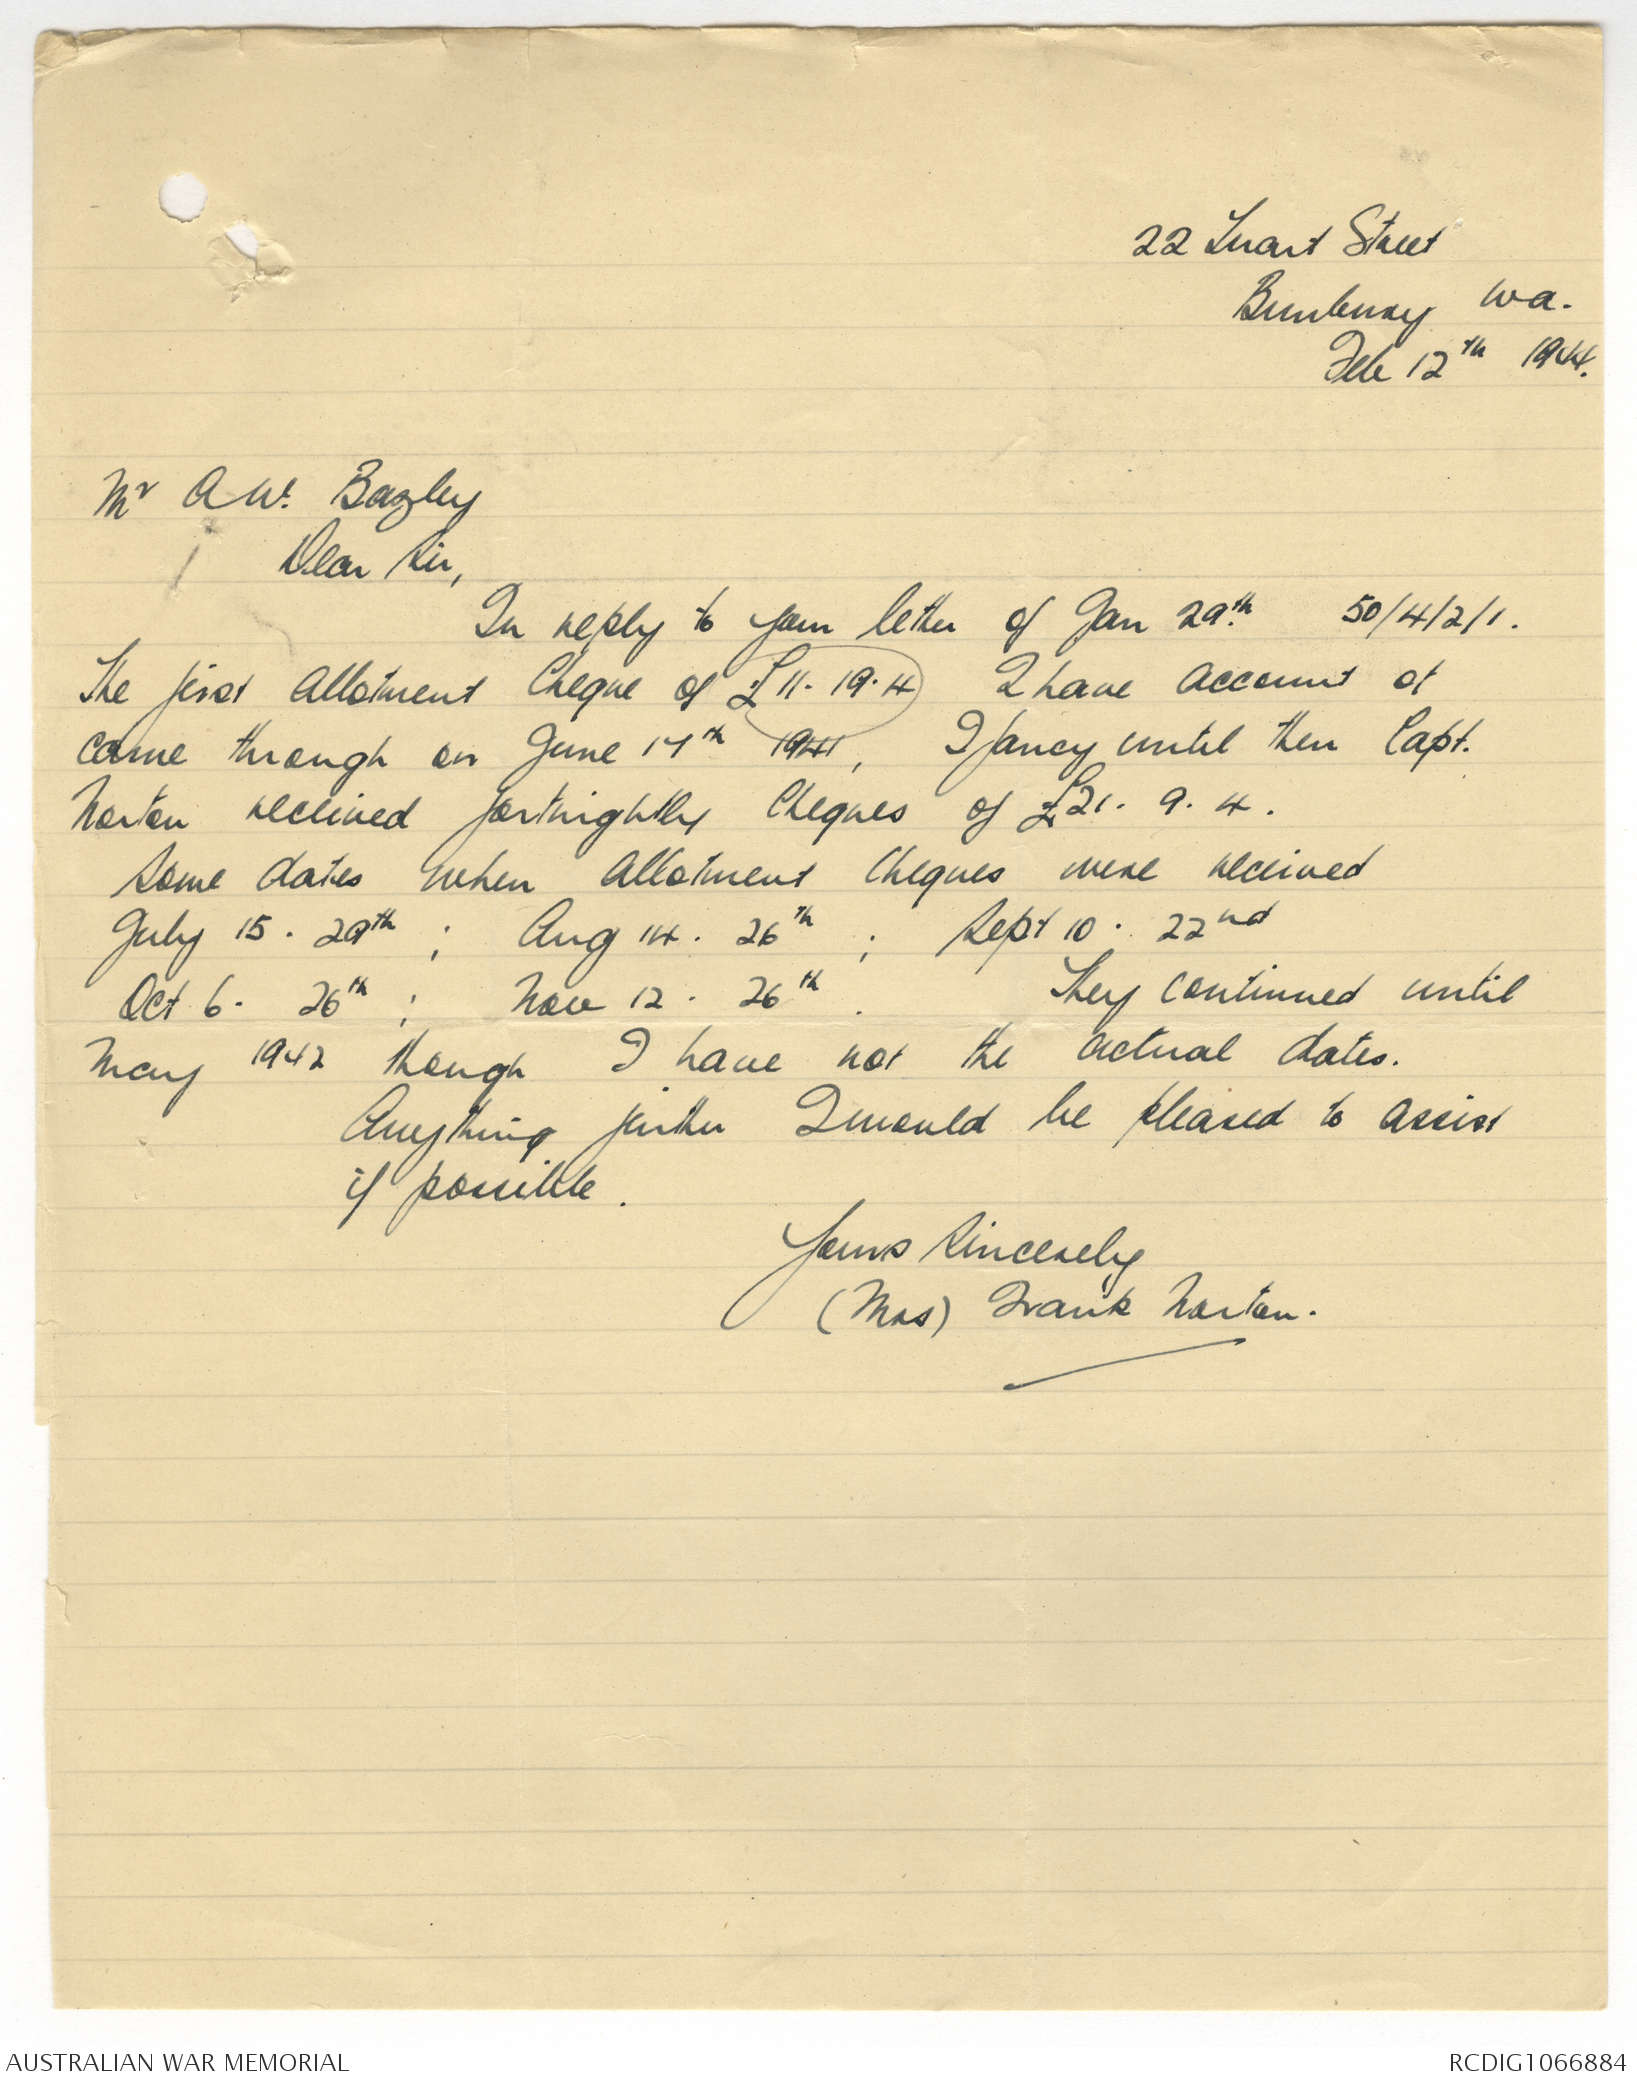 22 Tuart Street
Bunbury WA.
Feb 12th 1944.
Mr A W. Bazley
Dear Sir,
In reply to your letter of Jan 29th. 50/4/2/1.
The first allotment cheque of £11. 19. 4 I have account of
came through on June 17th 1941, I fancy until then Capt.
Norton received fortnightly cheques of £21. 9. 4.
Some dates when allotment cheques were received
July 15. 29th ; Aug 14. 26th ; Sept 10. 22nd
Oct 6. 26th ; Nov 12. 26th. They continued until
May 1942 though I have not the actual dates.
Anything further I would be pleased to assist
if possible.
Yours Sincerely
(Mrs) Frank Norton.
AUSTRALIAN WAR MEMORIAL
RCDIG1066884